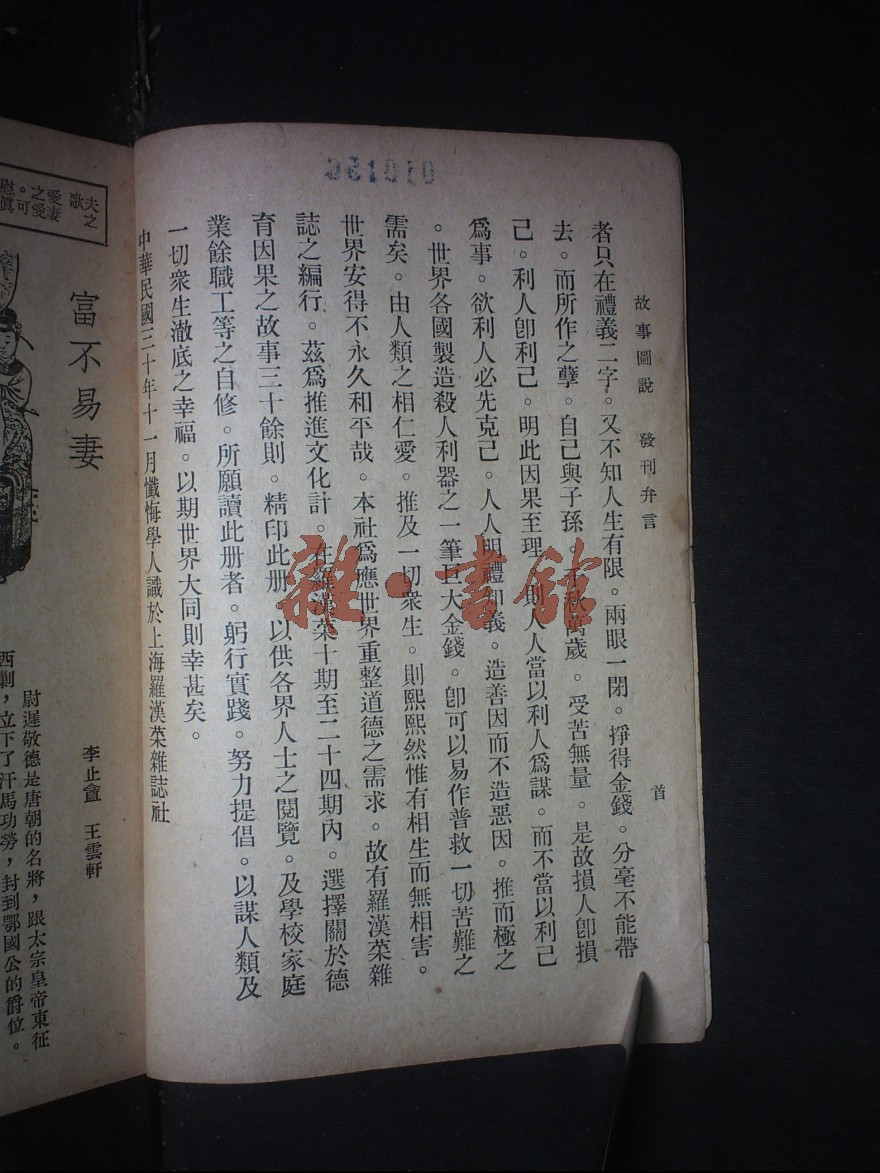 010156
故事圖說　發刊弁言
首
者只在禮義二字。又不知人生有限。兩眼一閉。掙得金錢。分毫不能帶
去。而所作之孽。自己與子孫。千秋萬歲。受苦無量。是故損人卽損
己。利人卽利己。明此因果至理。則人人當以利人爲謀。而不當以利己
爲事。欲利人必先克己。人人明禮知義。造善因而不造惡因。推而極之
。世界各國製造殺人利器之一筆巨大金錢。卽可以易作普救一切苦難之
需矣。由人類之相仁愛。推及一切衆生。則熙熙然惟有相生而無相害。
世界安得不永久和平哉。本社爲應世界重整道德之需求。故有羅漢菜雜
誌之編行。茲爲推進文化計。在羅漢菜十期至二十四期內。選擇關於德
育因果之故事三十餘則。精印此册。以供各界人士之閱覽。及學校家庭
業餘職工等之自修。所願讀此册者。躬行實踐。努力提倡。以謀人類及
一切衆生澈底之幸福。以期世界大同則幸甚矣。
中華民國三十年十一月懺悔學人識於上海羅漢菜雜誌社
雜·書館
夫之歌
愛妻
之愛
。可
慰眞
富不易妻
李止盦　王雲軒
尉遲敬德是唐朝的名將，跟太宗皇帝東征
西剿，立下了汗馬功勞，封到鄂國公的爵位。